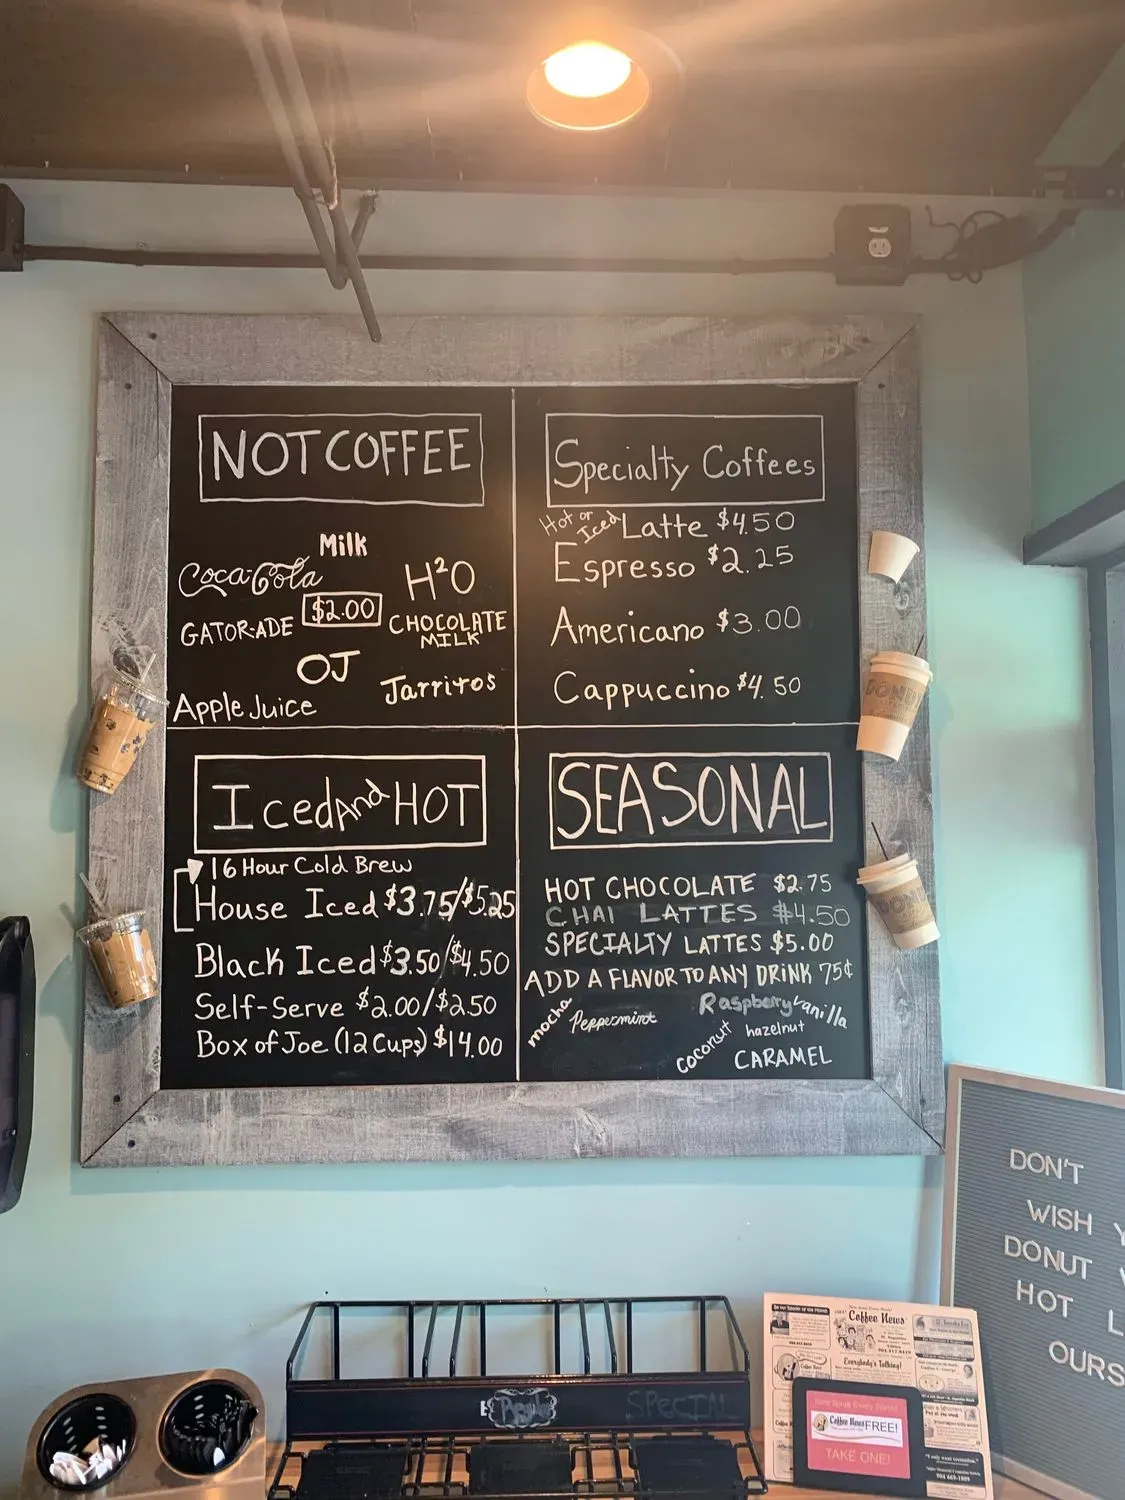 NOT COFFEE
Milk
Coca-Cola
H²O
$2.00
GATOR-ADE
CHOCOLATE
MILK
OJ
Jarritos
Apple Juice
Specialty Coffees
Hot or Iced Latte $4.50
Espresso $2.25
Americano $3.00
Cappuccino $4.50
Iced And HOT
16 Hour Cold Brew
House Iced $3.75/$5.25
Black Iced $3.50/$4.50
Self-Serve $2.00/$2.50
Box of Joe (12 Cups) $14.00
SEASONAL
HOT CHOCOLATE $2.75
CHAI LATTES $4.50
SPECIALTY LATTES $5.00
ADD A FLAVOR TO ANY DRINK 75¢
mocha
Peppermint
Raspberry
vanilla
coconut
hazelnut
CARAMEL
DON'T
WISH
DONUT
HOT
OURS
SPECIAL
Coffee News
Everybody's Talking!
New Issue Every Week!
Coffee News FREE!
TAKE ONE!